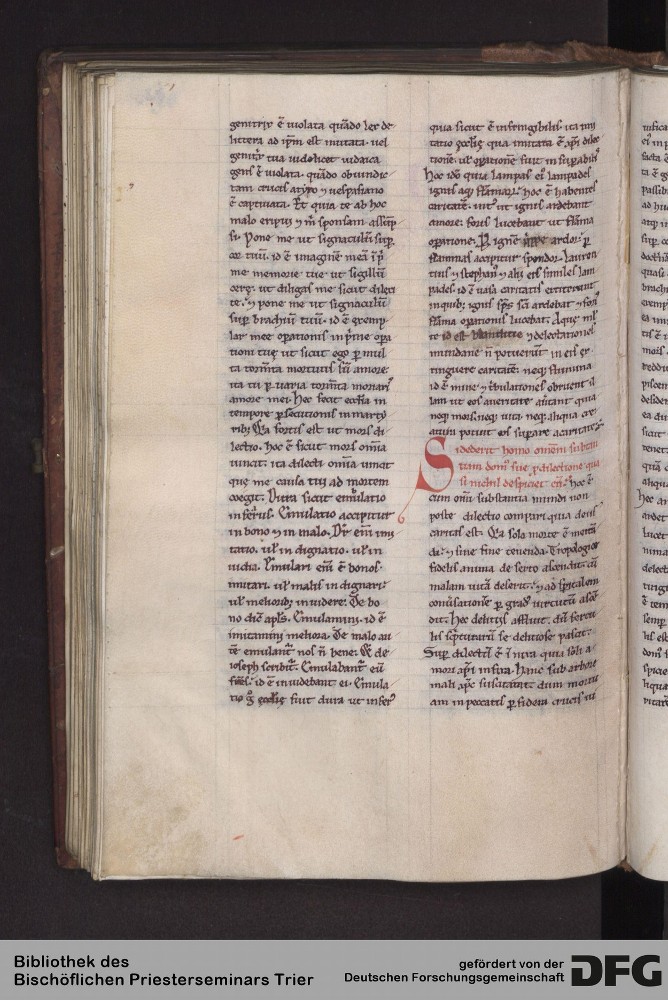 genitrix ē uiolata quādo lex de
littera ad ip̄m est mutata. uel
genitrix tua uidelicet iudaica
gens ē uiolata. quādo obuindic
tam crucis a tyto ⁊ uespasiano
ē captiuata. Et quia te ab hoc
malo eripui ⁊ m̄ sponsam assūp
si. Pone me ut signaculū sup
cor tuū. id ē imaginē meā īp̄
me memorie tue ut sigillū
cerę. ut diligas me sicut dilexi
te. ⁊ pone me ut signaculū
sup brachiū tuū. id ē exemp
lar meę operationis inp̄me opa
tioni tuę ut sicut ego p mul
ta torm̄ta mortuus sū amore.
ita tu p uaria torm̄ta moriar̄
amore mei. Hec fecit eccl̄ia in
tempore p̄secutionis in marty
rib; Q̄a fortis est ut mors di
lectio. hoc ē sicut mors om̄ia
uincit. ita dilectio om̄ia uincit
que me causa tui ad mortem
coegit. Dura sicut emulatio
infernus. Emulatio accipitur
in bono ⁊ in malo. Dr̄ eni imi
tatio. ul̄ in dignatio. ul̄ in
uidia. Emulari eni ē bonos
imitari. ul̄ malis in dignari
ul̄ meliorib; inuidere. De bo
no dic̄ apl̄s. Emulamini. id ē
imitamini meliora. De malo au
tē emulant̄ uos n̄ bene. & de
ioseph scribit̄. Emulabant̄ eū
fr̄es. id ē inuidebant ei. Emula
tio g̊ eccl̄ię fuit dura ut infer
quia sicut ē infringibilis. ita imi
tatio eccl̄ię. qua imitata ē xp̄i dilec
tionē. ul̄ oratione fuit insupabil̄
Hoc ido quia lampas ei lampades
ignis atq; flammarū. hoc ē habentes
caritatē. intus ut ignis ardebant
amore. foris lucebant ut flāma
opatione. P ignē ardor. p
flammas accipitur splendor. Lauren
tius ⁊ stephan⁹ ⁊ alii eis similes lam
pades. id ē uasa caritatis extiterunt
in quib; ignis sp̄s sc̄i ardebat ⁊ foris
flāma opationis lucebat. Aque mul
te id est ⁊ delectationes
mundane n̄ potuerunt in eis ex
tinguere caritatē. neq; flumina
id ē minę ⁊ tribulationes obruent il
lam ut eos auerteret aītant quia
neq; mors. neq; uita. neq; aliqua cre
atura poterit eos separare a caritate.
Si dederit homo omnem substan
tiam dom⁹ sue p dilectione qua
si nichil despiciet eā. hoc ē
cum om̄i substantia mundi non
poste dilectio conpari. qua deus
caritas est. Q̄a sola morte ē mercā
da. ⁊ sine fine tenenda. Tropologice
fidelis anima de serto ascendit. cū
malam uitā deserit. ⁊ ad sp̄italem
conuersationē p grad⁹ uirtutū ascē
dit. Hec delitiis affluit. dū fercu
lis sc̄pturarū se deliciose pascit.
Sup dilectū ē innixa quia soli a
mori xp̄i infixa. Hanc sub arbore
mali xp̄c suscitauit dum mortu
am in peccatis p fidem crucis ui
Bibliothek des
Bischöflichen Priesterseminars Trier
gefördert von der
Deutschen Forschungsgemeinschaft
DFG